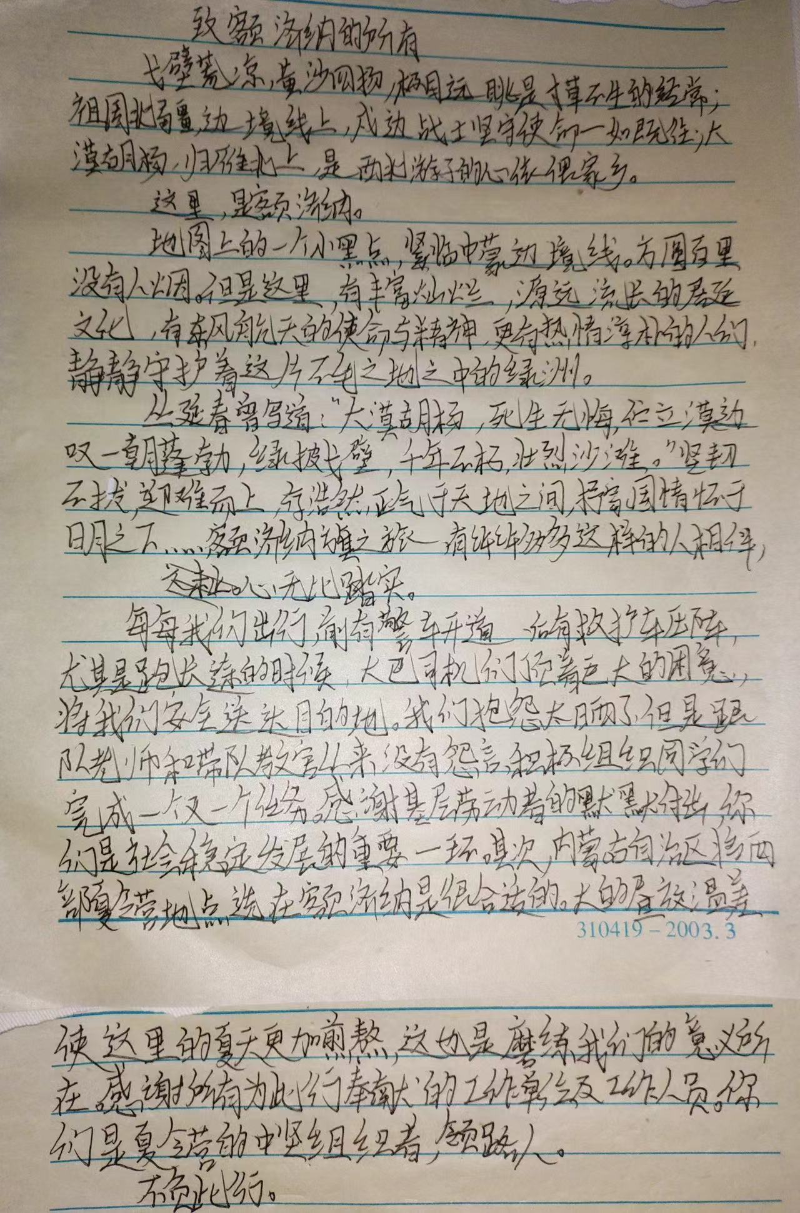 致额济纳的所有
戈壁荒凉,黄沙四扬,极目远眺是寸草不生的经常;
祖国北疆,边境线上,戍边战士坚守使命一如既往;大
漠胡杨,归雁北上,是两利游子的心依偎家乡。
这里,是额济纳。
地图上的一个小黑点,紧临中蒙边境线。方圆百里
没有人烟。但是这里,有丰富灿烂,源远流长的居延
文化,有东风航天的使命与精神,更有热情淳朴的人们,
静静守护着这片不毛之地之中的绿洲。
丛延春曾写道:“大漠胡杨,死生无悔,伫立漠边
叹一朝蓬勃,绿披戈壁,千年不朽,壮烈沙滩。”坚韧
不拔,迎难而上,存浩然正气于天地之间,抒家国情怀于
日月之下……额济纳旗之旅有许许多多这样的人相伴,
心无比踏实。
每每我们出行,前有警车开道,后有救护车压阵,
尤其是跑长途的时候,大巴司机们顶着巨大的困意,
将我们安全送达目的地。我们抱怨太晒了,但是跟
队老师和带队教官从来没有怨言,积极组织同学们
完成一个又一个任务。感谢基层劳动者的默默付出,你
们是社会稳定发展的重要一环。其次,内蒙古自治区将西
部夏令营地点选在额济纳是很合适的。大的昼夜温差
310419-2003.3
使这里的夏天更加煎熬,这也是磨练我们的意义所
在。感谢所有为此行奉献的工作单位及工作人员。你
们是夏令营的中坚组织者,领路人。
不负此行。